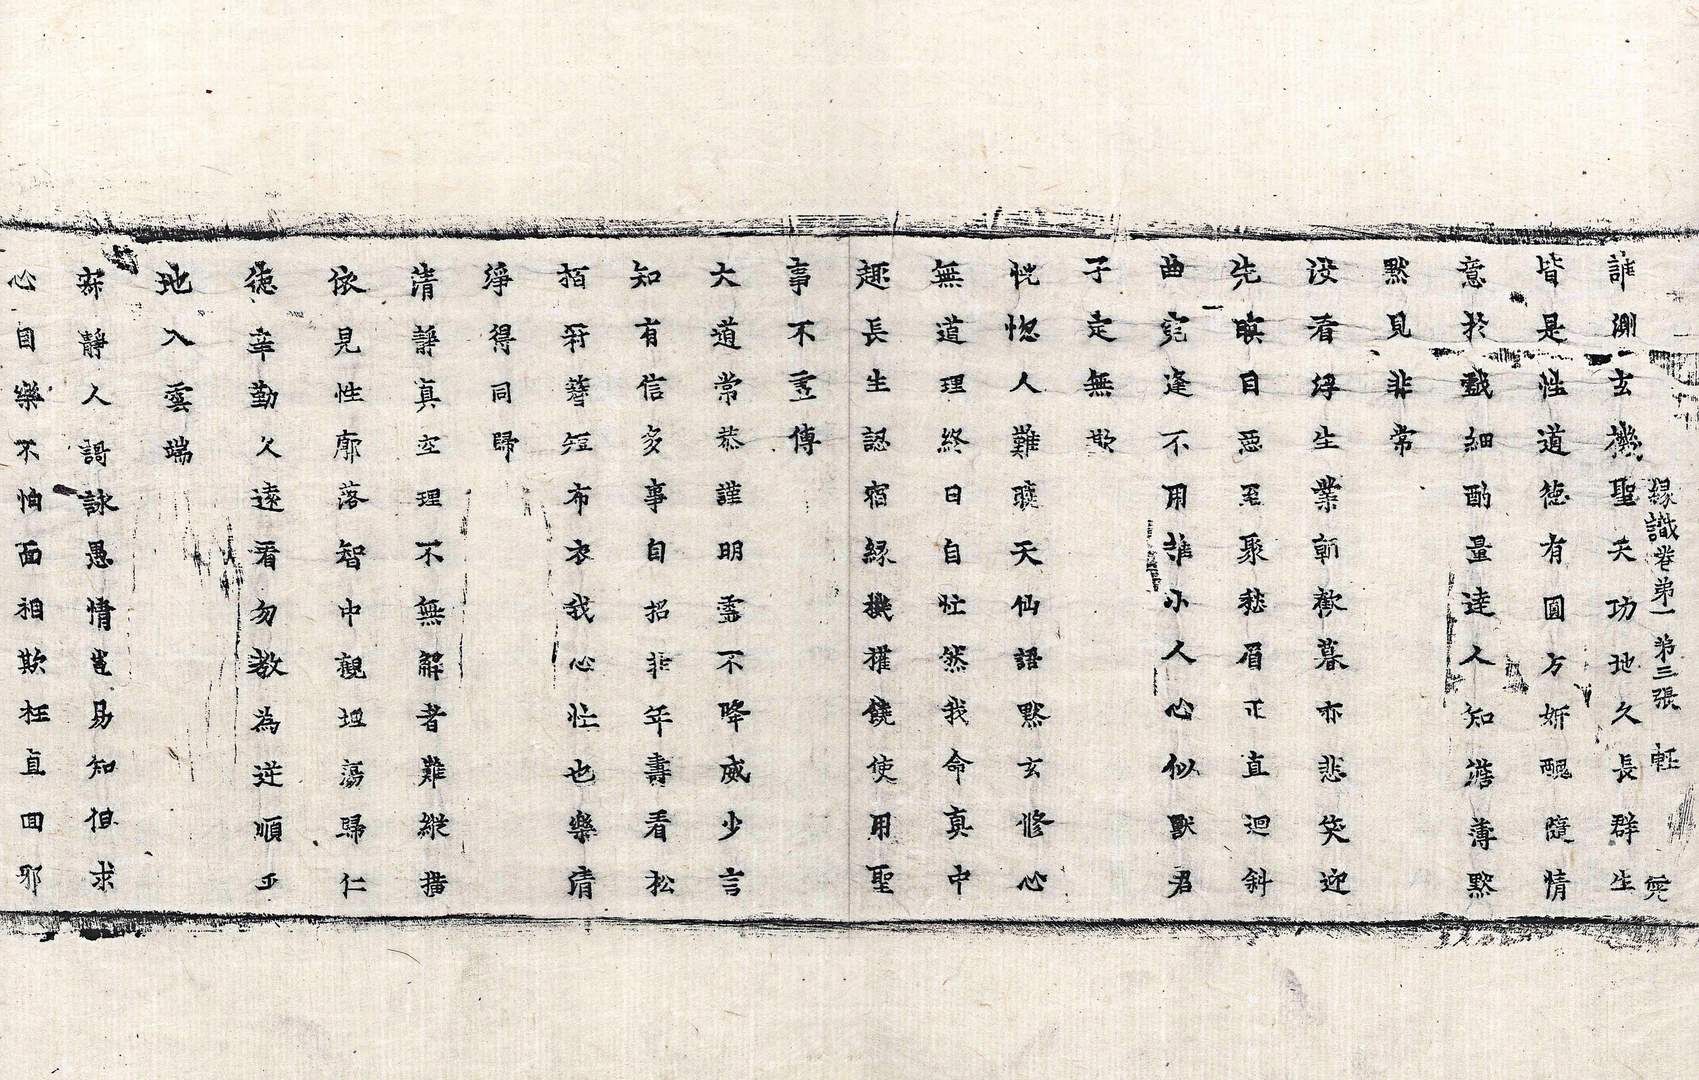 緣識卷第一 第三張 㽵
誰測玄機聖夫功地久長群生
皆是性道德有圓方妍醜隨情
意於戲細酌量達人知澹薄黙
黙見非常
没看浮生業朝歡暮亦悲笑迎
先瞋目惡至聚愁眉正直迴斜
曲寃逢不用誰小人心似獸君
子定無欺
恍惚人難曉天仙語黙玄修心
無道理終日自忙然我命真中
趣長生認宿緣機權饒使用聖
事不虛傳
大道常恭謹明靈不降威少言
知有信多事自招非年壽看松
栢籽簪短布衣我心忙也樂清
淨得同歸
清靜真空理不無解者難縱橫
依見性廓落智中觀坦蕩歸仁
德幸勤久遠看勿教為逆順平
地入雲端
寂靜人謌詠愚情豈易知但求
心目樂不怕面相欺枉直回邪